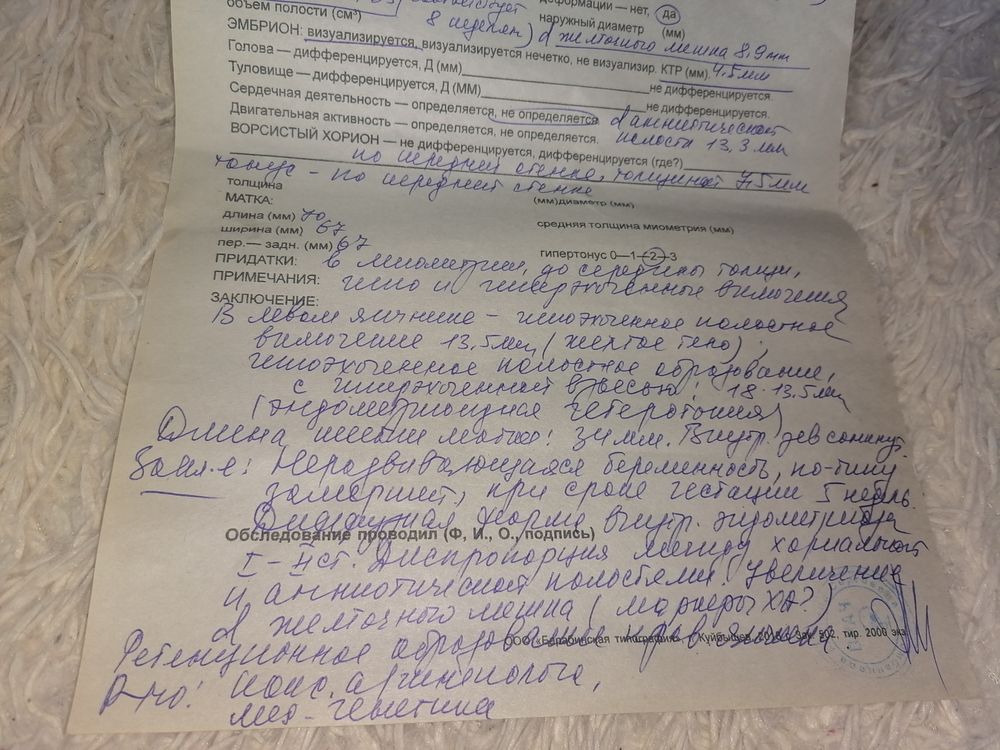 объем полости (см³)
8 недель)
деформации — нет, да
наружный диаметр (мм)
d желточного мешка 8,9 мм
ЭМБРИОН: визуализируется, визуализируется нечетко, не визуализир. КТР (мм). 4.5мм
Голова — дифференцируется, Д (мм) не дифференцируется.
Туловище — дифференцируется, Д (ММ) не дифференцируется.
Сердечная деятельность — определяется, не определяется d амниотической
Двигательная активность — определяется, не определяется. полости 13,3 мм
ВОРСИСТЫЙ ХОРИОН — не дифференцируется, дифференцируется (где?)
по передней стенке, толщиной 7,5 мм
тонус - по передней стенке
толщина (мм)диаметр (мм)
МАТКА:
длина (мм) 70 средняя толщина миометрия (мм)
ширина (мм) 67
пер.— задн. (мм) 67 гипертонус 0—1—2—3
ПРИДАТКИ: в миометрии, до середины толщи,
ПРИМЕЧАНИЯ: гипо и гиперэхогенные включения
ЗАКЛЮЧЕНИЕ:
В левом яичнике - гипоэхогенное полостное
включение 13.5мм (желтое тело);
гипоэхогенное полостное образование,
с гиперэхогенной взвесью: 18·13.5мм
(эндометриоидная гетеротопия)
Длина шейки матки: 34мм. Внутр. зев сомкнут.
Закл-е: Неразвивающаяся беременность, по типу
замершей, при сроке гестации 5 недель.
Диффузная форма внутр. эндометриоза
Обследование проводил (Ф, И., О., подпись)
I-II ст. Диспропорция между хориальной
и амниотической полостями. Увеличение
d желточного мешка (маркеры ХА?)
ООО «Барабинская типография» г. Куйбышев, зак. 502, тир. 2000 экз.
Ретенционное образование лев. яичника
Р-но: конс. а/гинеколога,
мед-генетика